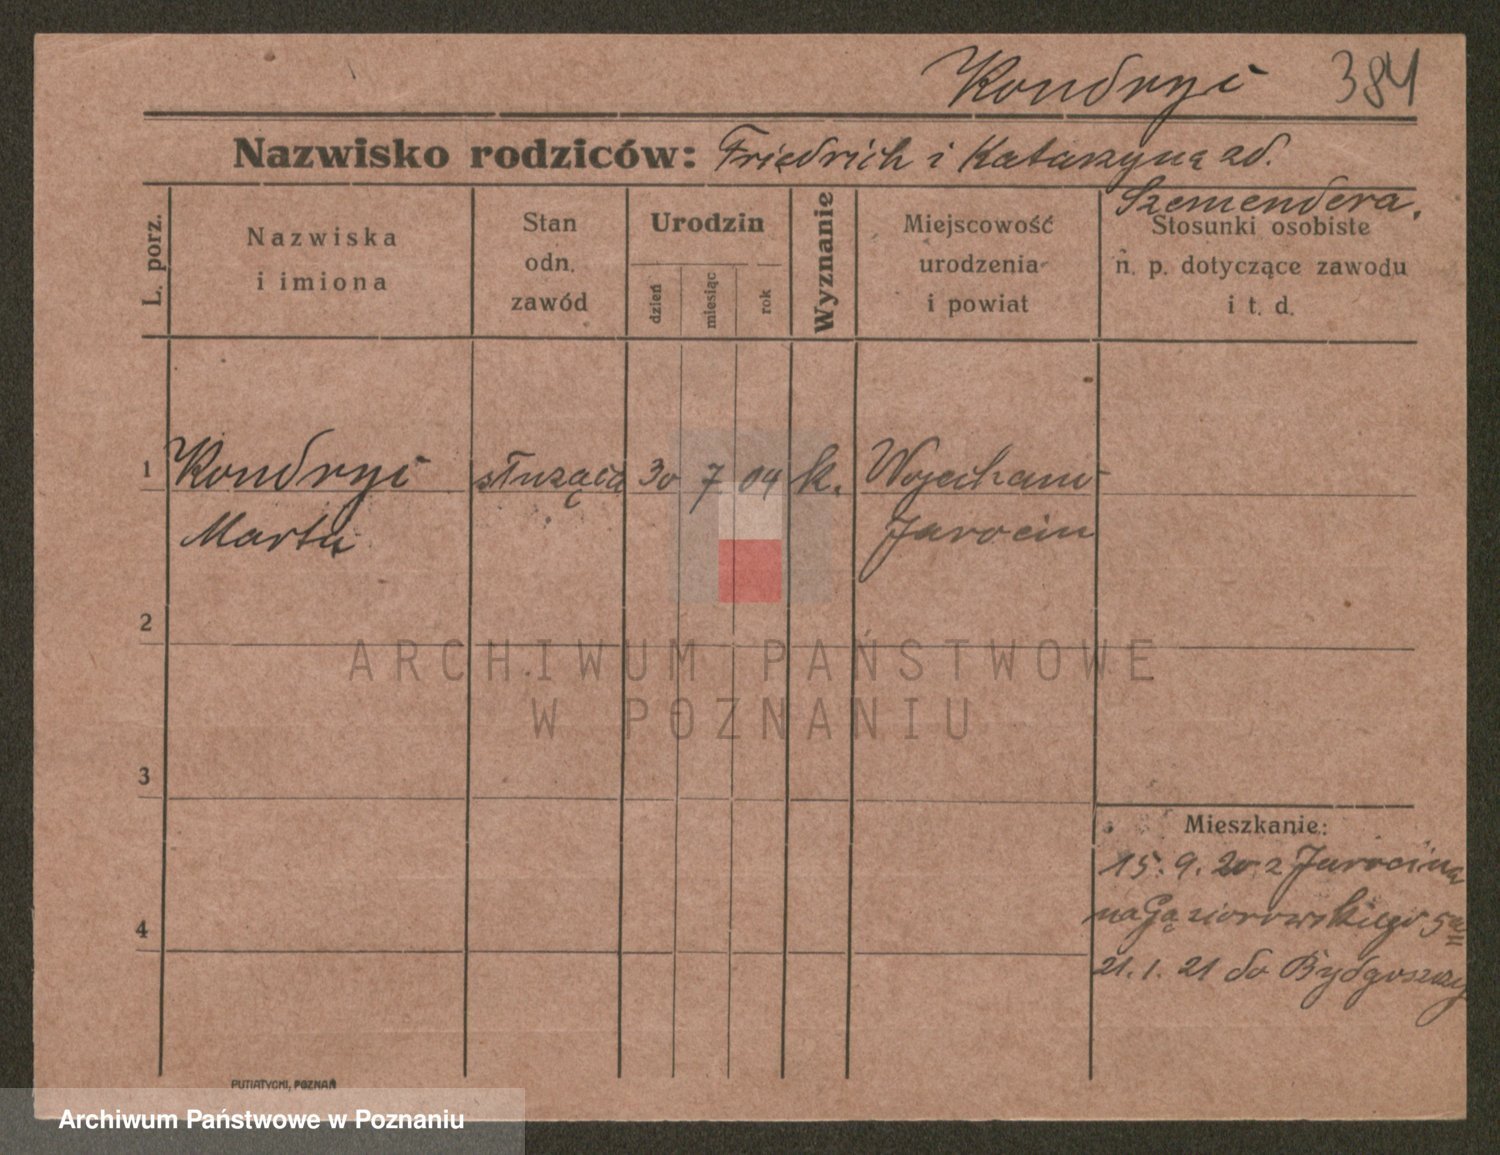 Kondryć 384
Nazwisko rodziców: Friedrich i Katarzyna zd.
Szemendera.
L. porz.
Nazwiska
i imiona
Stan
odn.
zawód
Urodzin
dzień
miesiąc
rok
Wyznanie
Miejscowość
urodzenia
i powiat
Stosunki osobiste
n. p. dotyczące zawodu
i t. d.
1 Kondryć służąca 30 7 04 k.
Marta
Jarocin
2
3
4
Mieszkanie:
15. 9. 20 z Jarocina
na Gąsiorowskiego 5a
21. 1. 21 do Bydgoszczy
PUTIATYCKI, POZNAŃ
ARCHIWUM PAŃSTWOWE
W POZNANIU
Archiwum Państwowe w Poznaniu